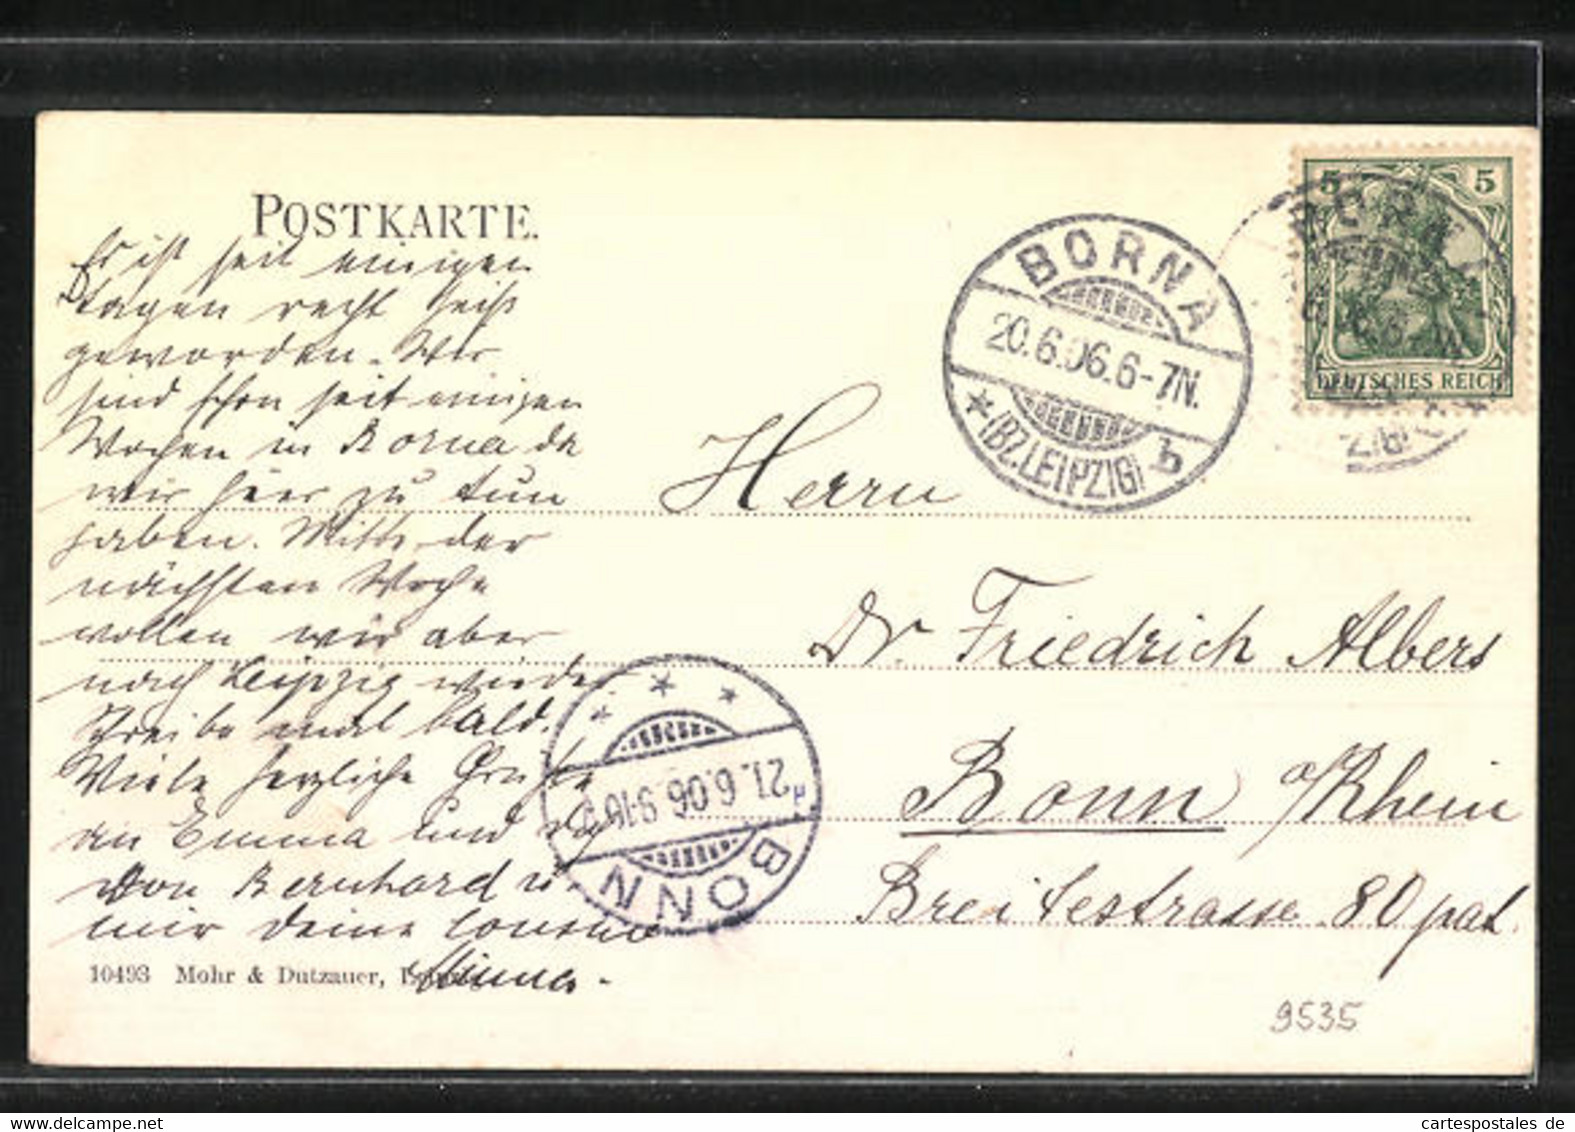 POSTKARTE.
Es ist seit einigen
Tagen recht heiß
geworden. Wir
sind schon seit einigen
Wochen in Borna da
wir hier zu tun
haben. Mitte der
nächsten Woche
wollen wir aber
nach Leipzig wieder.
Schreibe mal bald.
Viele herzliche Grüße
an Emma und
von Bernhard u.
mir deine Cousine
10493 Mohr & Dutzauer, Leipzig
BORNA
20.6.06.6-7N.
* (BZ. LEIPZIG) b
5 5
DEUTSCHES REICH
Herrn
Dr. Friedrich Albers
Bonn a/Rhein
Breitestrasse 80 pat.
BONN
21.6.06 9-10
9535
cartespostales.de